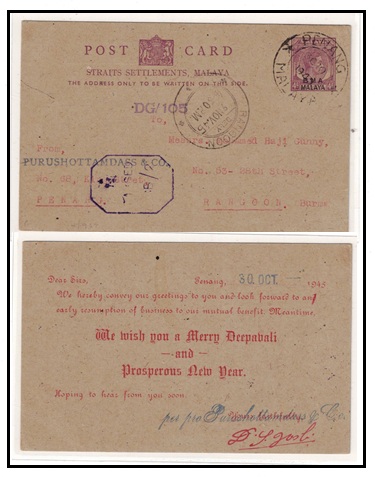 POST CARD
STRAITS SETTLEMENTS, MALAYA.
THE ADDRESS ONLY TO BE WRITTEN ON THIS SIDE.
PENANG
MALAYA
B M A
MALAYA
DG/105
RANGOON
To,
From,
PURUSHOTTAMDASS & CO.
Street,
RANGOON Burma
Dear Sirs, Penang, 30 OCT 1945
We hereby convey our greetings to you and look forward to an
early resumption of business to our mutual benefit. Meantime.
We wish you a Merry Deepavali
—and—
Prosperous New Year.
Hoping to hear from you soon.
per pro Purushottamdass & Co.